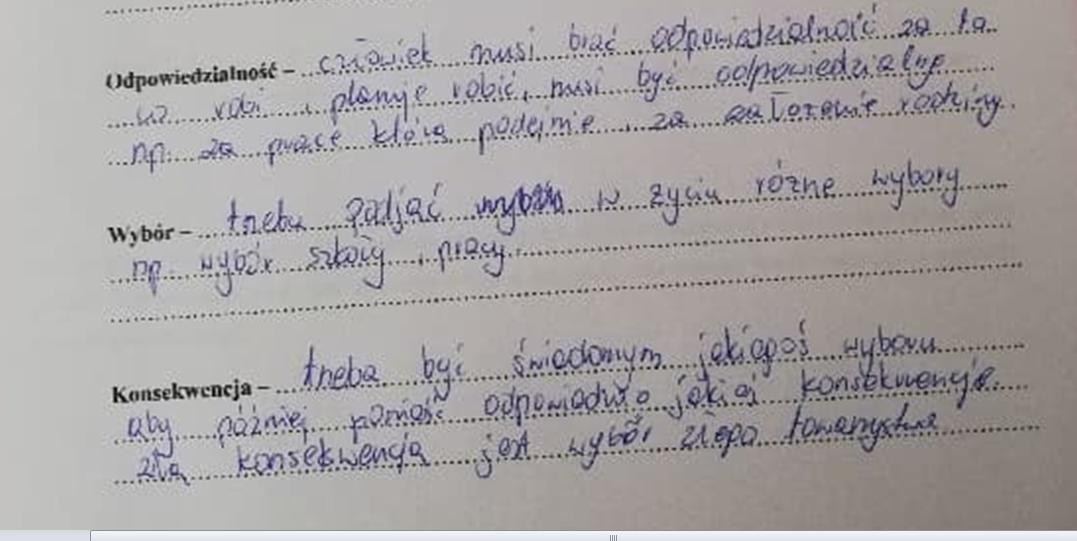 Odpowiedzialność – człowiek musi brać odpowiedzialność za to
co robi i planuje robić, musi być odpowiedzialny
np. za pracę którą podejmie, za założenie rodziny.
Wybór – trzeba podjąć w życiu różne wybory
np. wybór szkoły, pracy.
Konsekwencja – trzeba być świadomym jakiegoś wyboru
aby później ponieść odpowiednio jakieś konsekwencje.
złą konsekwencją jest wybór złego towarzystwa